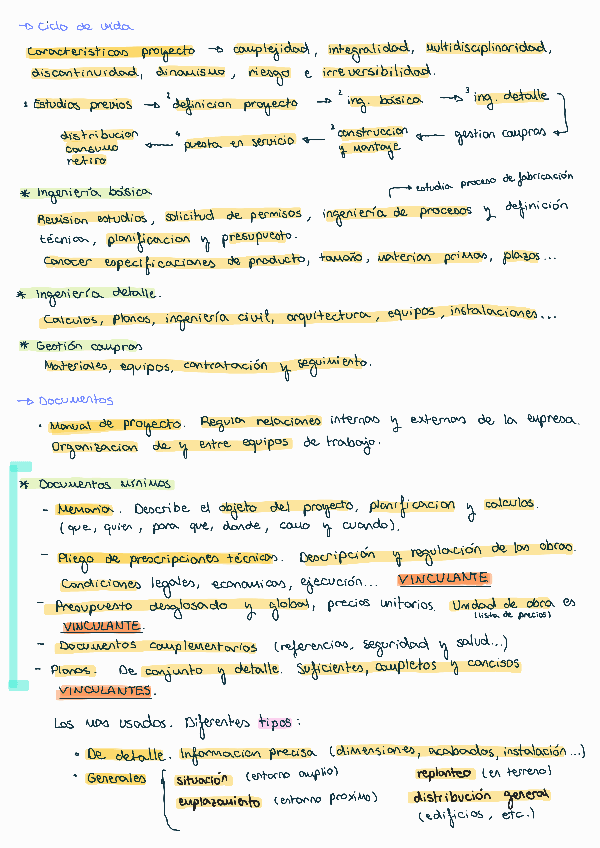 → Ciclo de vida
Características proyecto → complejidad, integralidad, multidisciplinaridad,
discontinuidad, dinamismo, riesgo e irreversibilidad.
Estudios previos → definicion proyecto → ing. básica → ing. detalle
distribucion consumo retiro ← puesta en servicio ← construccion y montaje ← gestion compras
* Ingeniería básica → estudia proceso de fabricación
Revision estudios, solicitud de permisos, ingeniería de procesos y definición
técnica, planificacion y presupuesto.
Conocer especificaciones de producto, tamaño, materias primas, plazos...
* Ingeniería detalle.
Calculos, planos, ingeniería civil, arquitectura, equipos, instalaciones...
* Gestión compras
Materiales, equipos, contratación y seguimiento.
→ Documentos
· Manual de proyecto. Regula relaciones internas y externas de la empresa.
Organizacion de y entre equipos de trabajo.
* Documentos mínimos
- Memoria. Describe el objeto del proyecto, planificacion y calculos.
(que, quien, para que, donde, como y cuando).
- Pliego de prescripciones técnicas. Descripción y regulación de las obras.
Condiciones legales, economicas, ejecución... VINCULANTE
- Presupuesto desglosado y global, precios unitarios. Unidad de obra es
(lista de precios)
VINCULANTE.
- Documentos complementarios (referencias, seguridad y salud...)
- Planos. De conjunto y detalle. Suficientes, completos y concisos
VINCULANTES.
Los mas usados. Diferentes tipos:
• De detalle. Informacion precisa (dimensiones, acabados, instalación...)
• Generales situación (entorno amplio) replanteo (en terreno)
emplazamiento (entorno proximo) distribución general
(edificios, etc.)